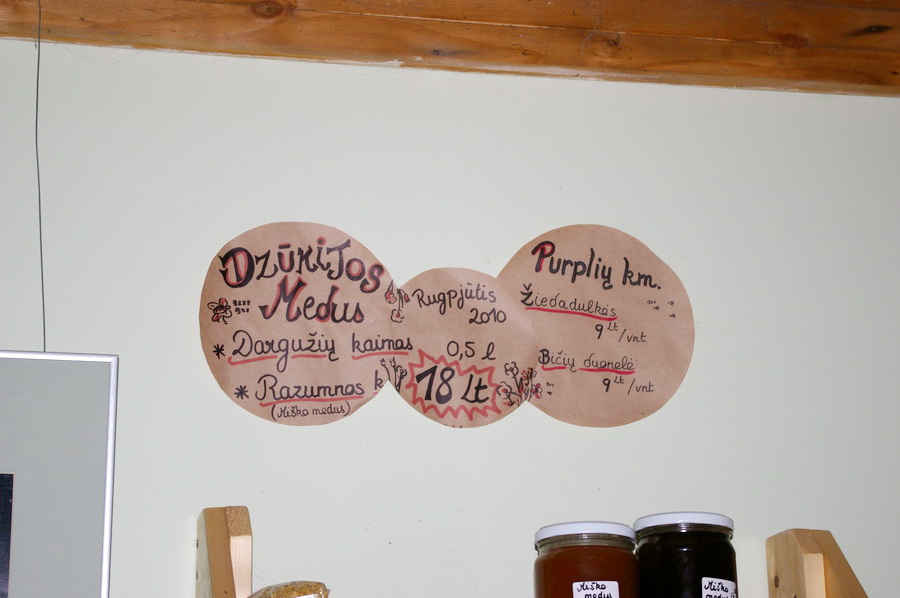 Dzūkijos
Medus
* Dargužių kaimas
* Razumnos k
(Miško medus)
Rugpjūtis
2010
0,5 l
18 Lt
Purplių km.
Žiedadulkės
9 Lt/vnt
Bičių duonelė
9 Lt/vnt
Miško
medus
Miško
medus